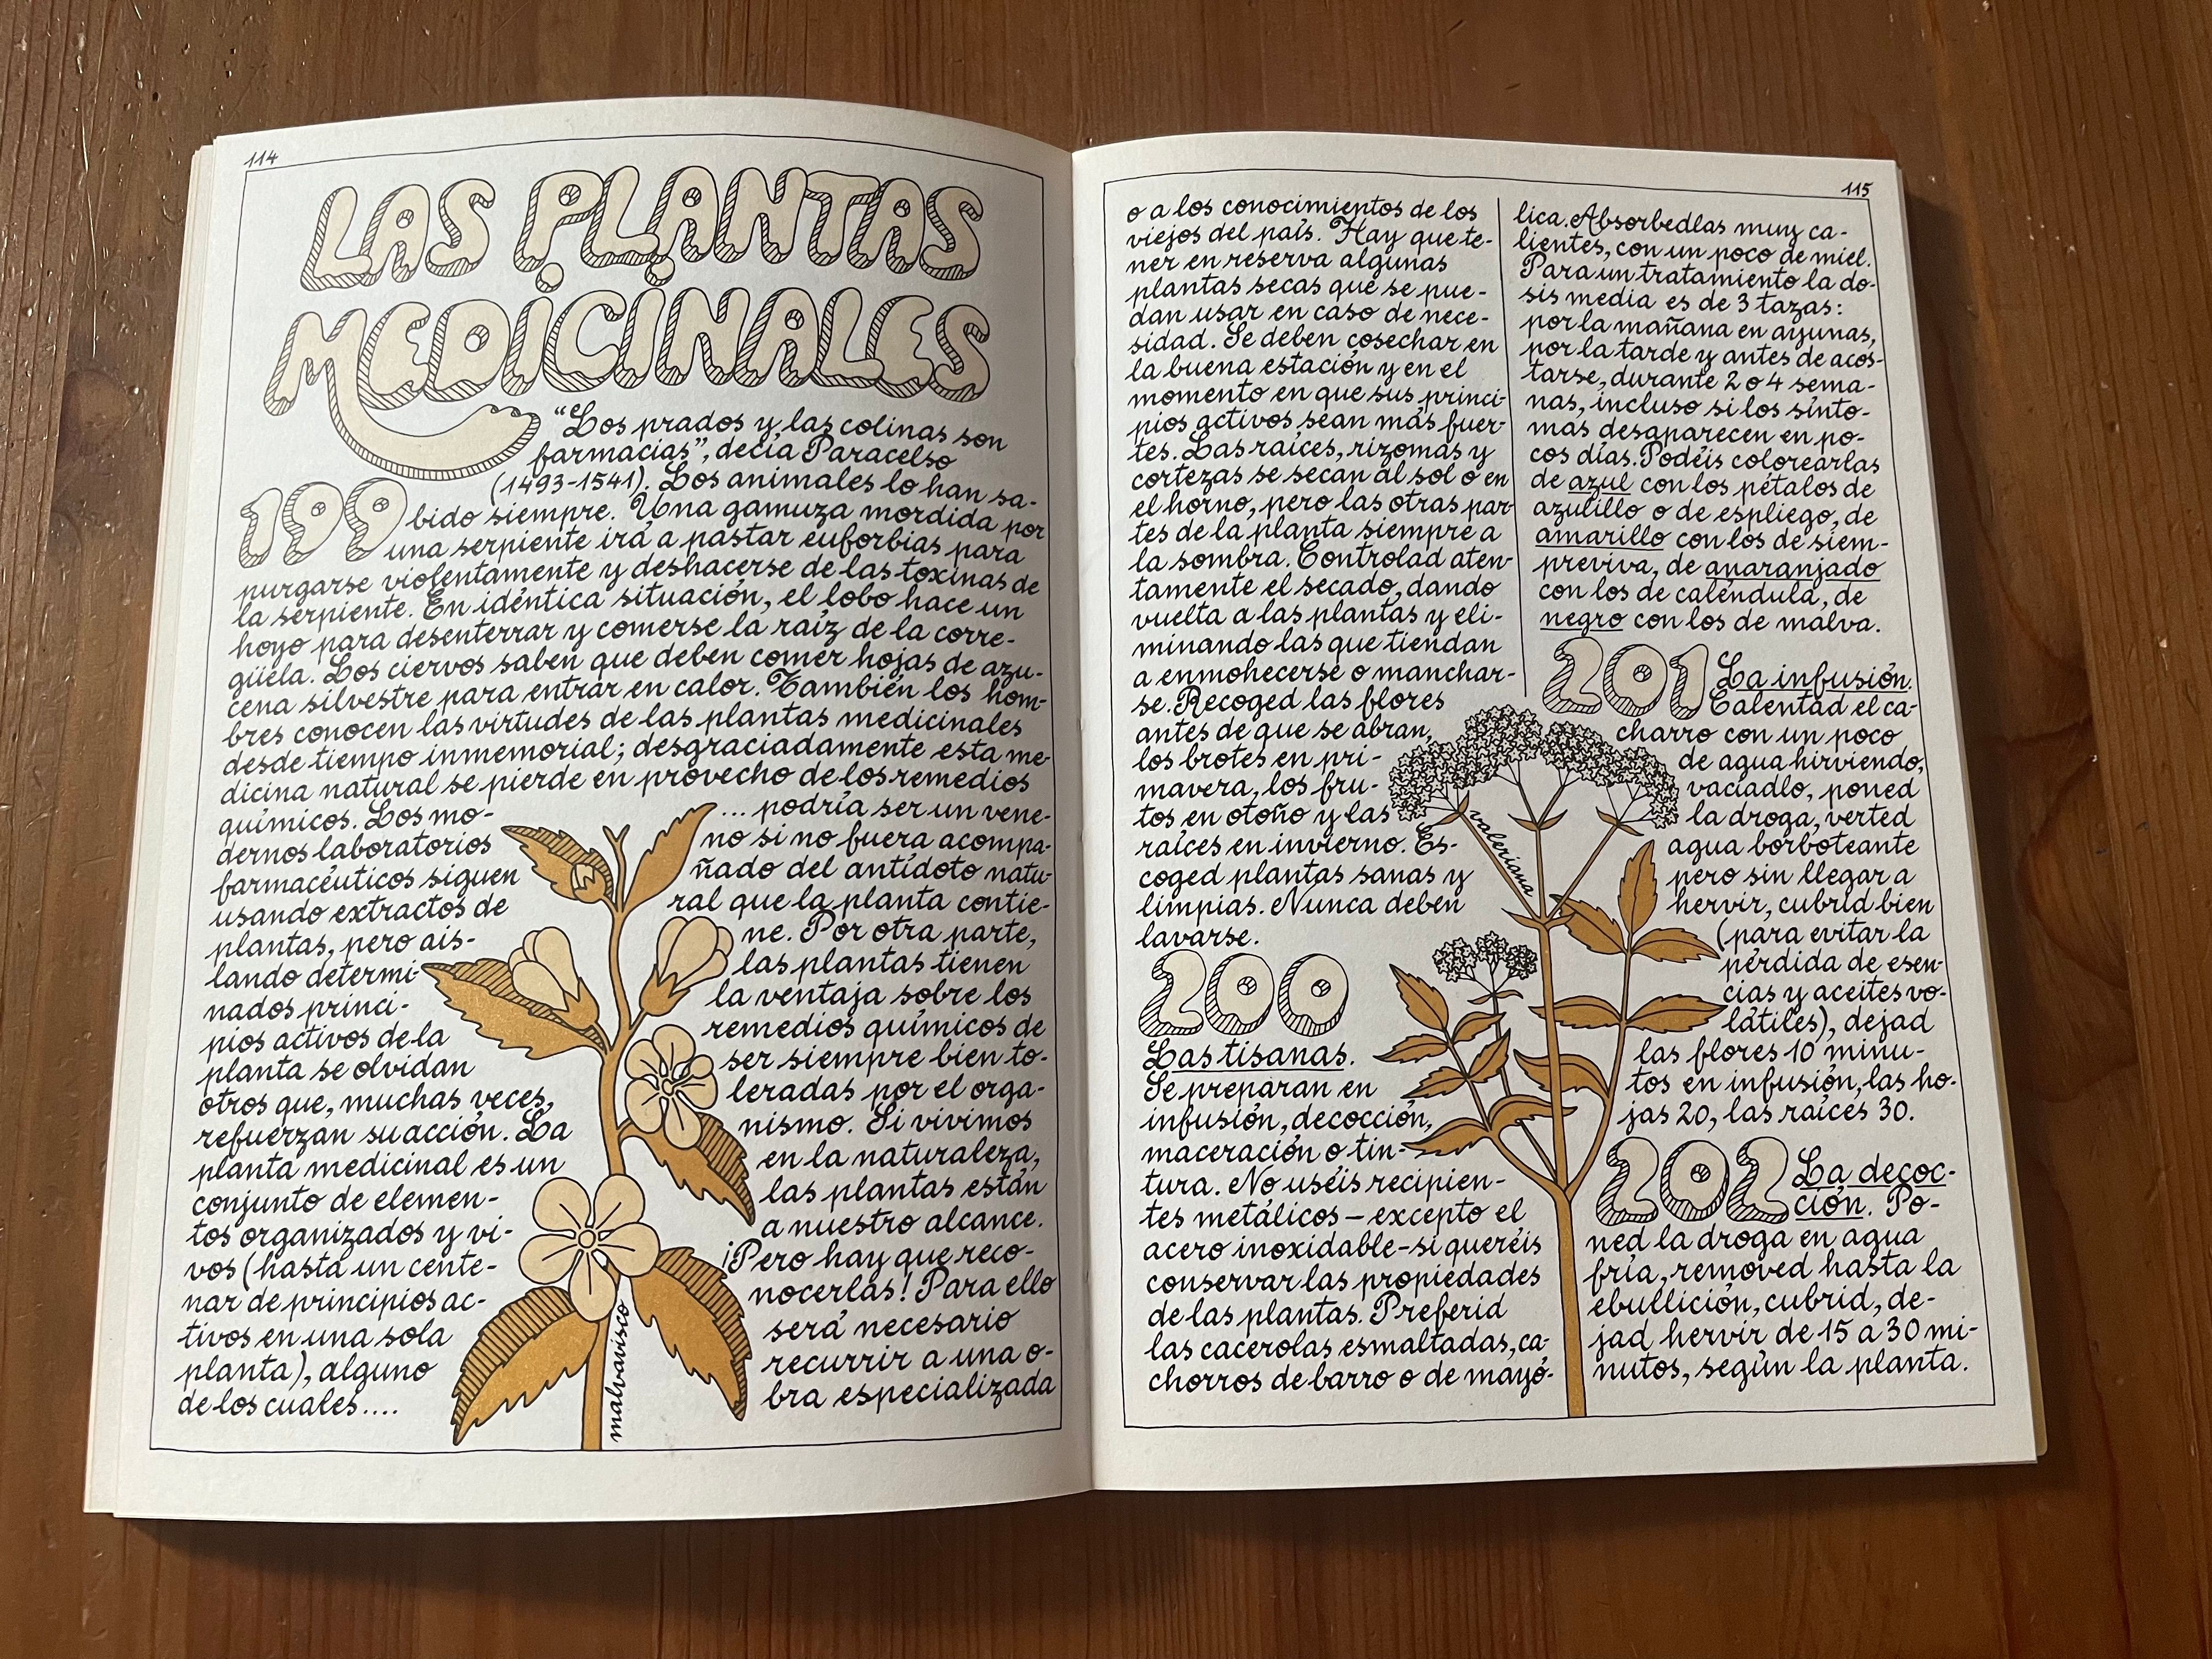 114
LAS PLANTAS
MEDICINALES
"Los prados y las colinas son
farmacias", decía Paracelso
(1493-1541). Los animales lo han sa-
199
bido siempre. Una gamuza mordida por
una serpiente irá a pastar euforbias para
purgarse violentamente y deshacerse de las toxinas de
la serpiente. En idéntica situación, el lobo hace un
hoyo para desenterrar y comerse la raíz de la corre-
güela. Los ciervos saben que deben comer hojas de azu-
cena silvestre para entrar en calor. También los hom-
bres conocen las virtudes de las plantas medicinales
desde tiempo inmemorial; desgraciadamente esta me-
dicina natural se pierde en provecho de los remedios
químicos. Los mo-
dernos laboratorios
farmacéuticos siguen
usando extractos de
plantas, pero ais-
lando determi-
nados princi-
pios activos de la
planta se olvidan
otros que, muchas veces,
refuerzan su acción. La
planta medicinal es un
conjunto de elemen-
tos organizados y vi-
vos (hasta un cente-
nar de principios ac-
tivos en una sola
planta), alguno
de los cuales....
... podría ser un vene-
no si no fuera acompa-
ñado del antídoto natu-
ral que la planta contie-
ne. Por otra parte,
las plantas tienen
la ventaja sobre los
remedios químicos de
ser siempre bien to-
leradas por el orga-
nismo. Si vivimos
en la naturaleza,
las plantas están
a nuestro alcance.
¡Pero hay que reco-
nocerlas! Para ello
será necesario
recurrir a una o-
bra especializada
malvavisco
115
o a los conocimientos de los
viejos del país. Hay que te-
ner en reserva algunas
plantas secas que se pue-
dan usar en caso de nece-
sidad. Se deben cosechar en
la buena estación y en el
momento en que sus princi-
pios activos sean más fuer-
tes. Las raíces, rizomas y
cortezas se secan al sol o en
el horno, pero las otras par-
tes de la planta siempre a
la sombra. Controlad aten-
tamente el secado, dando
vuelta a las plantas y eli-
minando las que tiendan
a enmohecerse o manchar-
se. Recoged las flores
antes de que se abran,
los brotes en pri-
mavera, los fru-
tos en otoño y las
raíces en invierno. Es-
coged plantas sanas y
limpias. Nunca deben
lavarse.
200
Las tisanas.
Se preparan en
infusión, decocción,
maceración o tin-
tura. No uséis recipien-
tes metálicos – excepto el
acero inoxidable – si queréis
conservar las propiedades
de las plantas. Preferid
las cacerolas esmaltadas, ca-
chorros de barro o de mayó-
lica. Absorbedlas muy ca-
lientes, con un poco de miel.
Para un tratamiento la do-
sis media es de 3 tazas:
por la mañana en ayunas,
por la tarde y antes de acos-
tarse, durante 2 o 4 sema-
nas, incluso si los sínto-
mas desaparecen en po-
cos días. Podéis colorearlas
de azul con los pétalos de
azulillo o de espliego, de
amarillo con los de siem-
previva, de anaranjado
con los de caléndula, de
negro con los de malva.
201
La infusión.
Calentad el ca-
charro con un poco
de agua hirviendo,
vaciadlo, poned
la droga, verted
agua borboteante
pero sin llegar a
hervir, cubrid bien
(para evitar la
pérdida de esen-
cias y aceites vo-
látiles), dejad
las flores 10 minu-
tos en infusión, las ho-
jas 20, las raíces 30.
202
La decoc-
ción. Po-
ned la droga en agua
fría, removed hasta la
ebullición, cubrid, de-
jad hervir de 15 a 30 mi-
nutos, según la planta.
valeriana